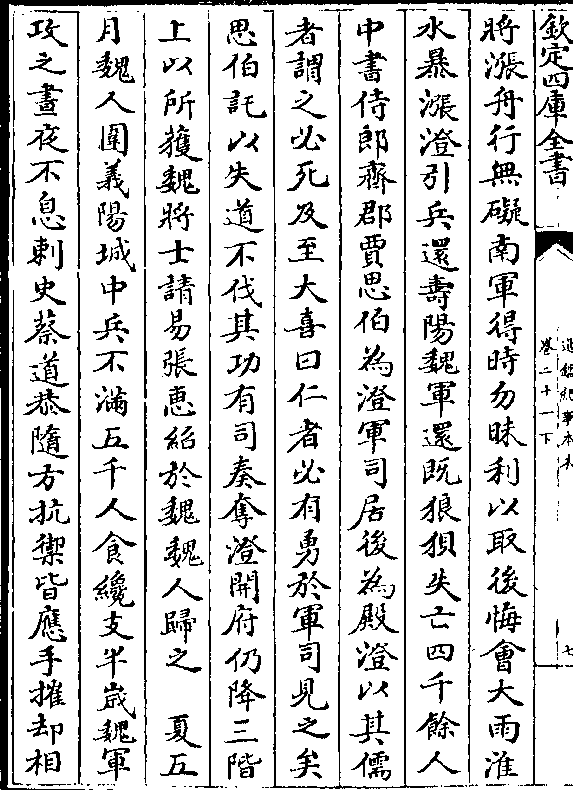 欽定四庫全書
通鑑紀事本末
卷二十一下
七
將漲舟行無礙南軍得時勿昧利以取後悔會大雨淮
水暴漲澄引兵還壽陽魏軍還既狼狽失亡四千餘人
中書侍郎齊郡賈思伯為澄軍司居後為殿澄以其儒
者謂之必死及至大喜曰仁者必有勇於軍司見之矣
思伯託以失道不伐其功有司奏奪澄開府仍降三階
上以所獲魏將士請易張惠紹於魏魏人歸之　夏五
月魏人圍義陽城中兵不滿五千人食纔支半歲魏軍
攻之晝夜不息刺史蔡道恭隨方抗禦皆應手摧却相